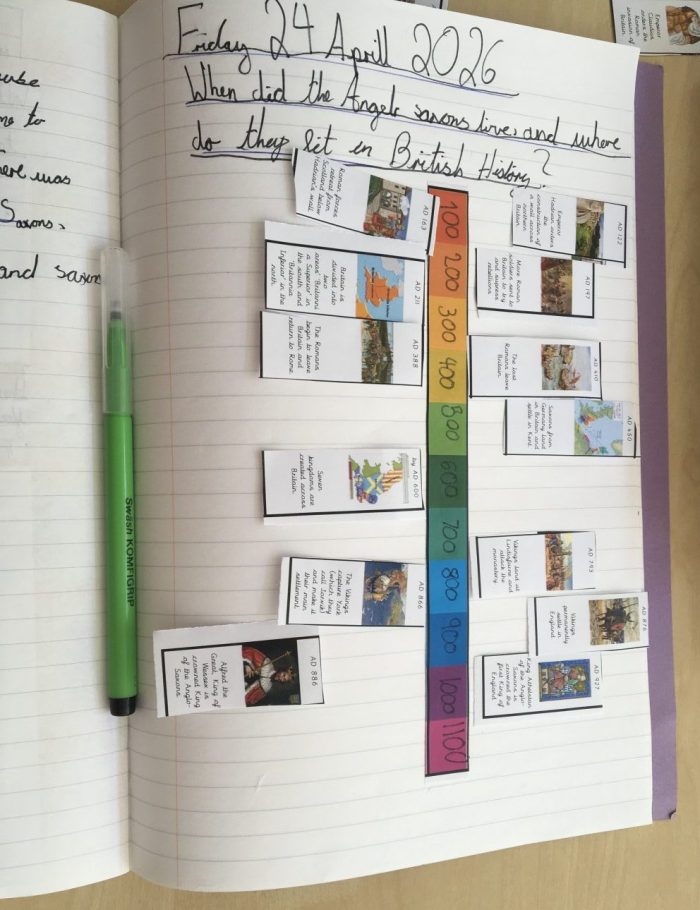 Friday 24 Aprill 2026
When did the Angelo saxons live, and where
do they fit in British History?
Emperor
Claudius
orders the
Roman
invasion of
Britain
me to
Saxons,
and saxons
AD 163
Roman forces
retreat from
Scotland below
Hadrian's Wall
AD 122
Emperor
Hadrian orders
the
construction of
a wall across
northern
Britain.
AD 211
Britain is
divided into
two
areas "Britanni
a Superior" in
the south and
"Britannia
Inferior" in the
north.
AD 197
More Roman
soldiers sent to
Britain to by
and supress
rebellions
AD 388
The Romans
begin to leave
Britain and
return to Rome
AD 410
The last
Romans leave
Britain.
AD 450
Saxons from
Germany land
in Britain and
settle in Kent.
by AD 600
Seven
kingdoms are
created across
Britain.
AD 793
Vikings land at
Lindisfarne and
attack the
monastery
AD 866
The Vikings
capture York
(which they
call Jorvik)
and make it
their main
settlement.
AD 876
Vikings
permanently
settle in
England
AD 886
Alfred the
Great, King of
Wessex is
crowned King
of the Anglo-
Saxons
AD 927
King Athelstan
of the Anglo-
Saxons is
crowned the
first King of
England
100
200
300
400
500
600
700
800
900
1000
1100
Swäsh KOMFIGRIP